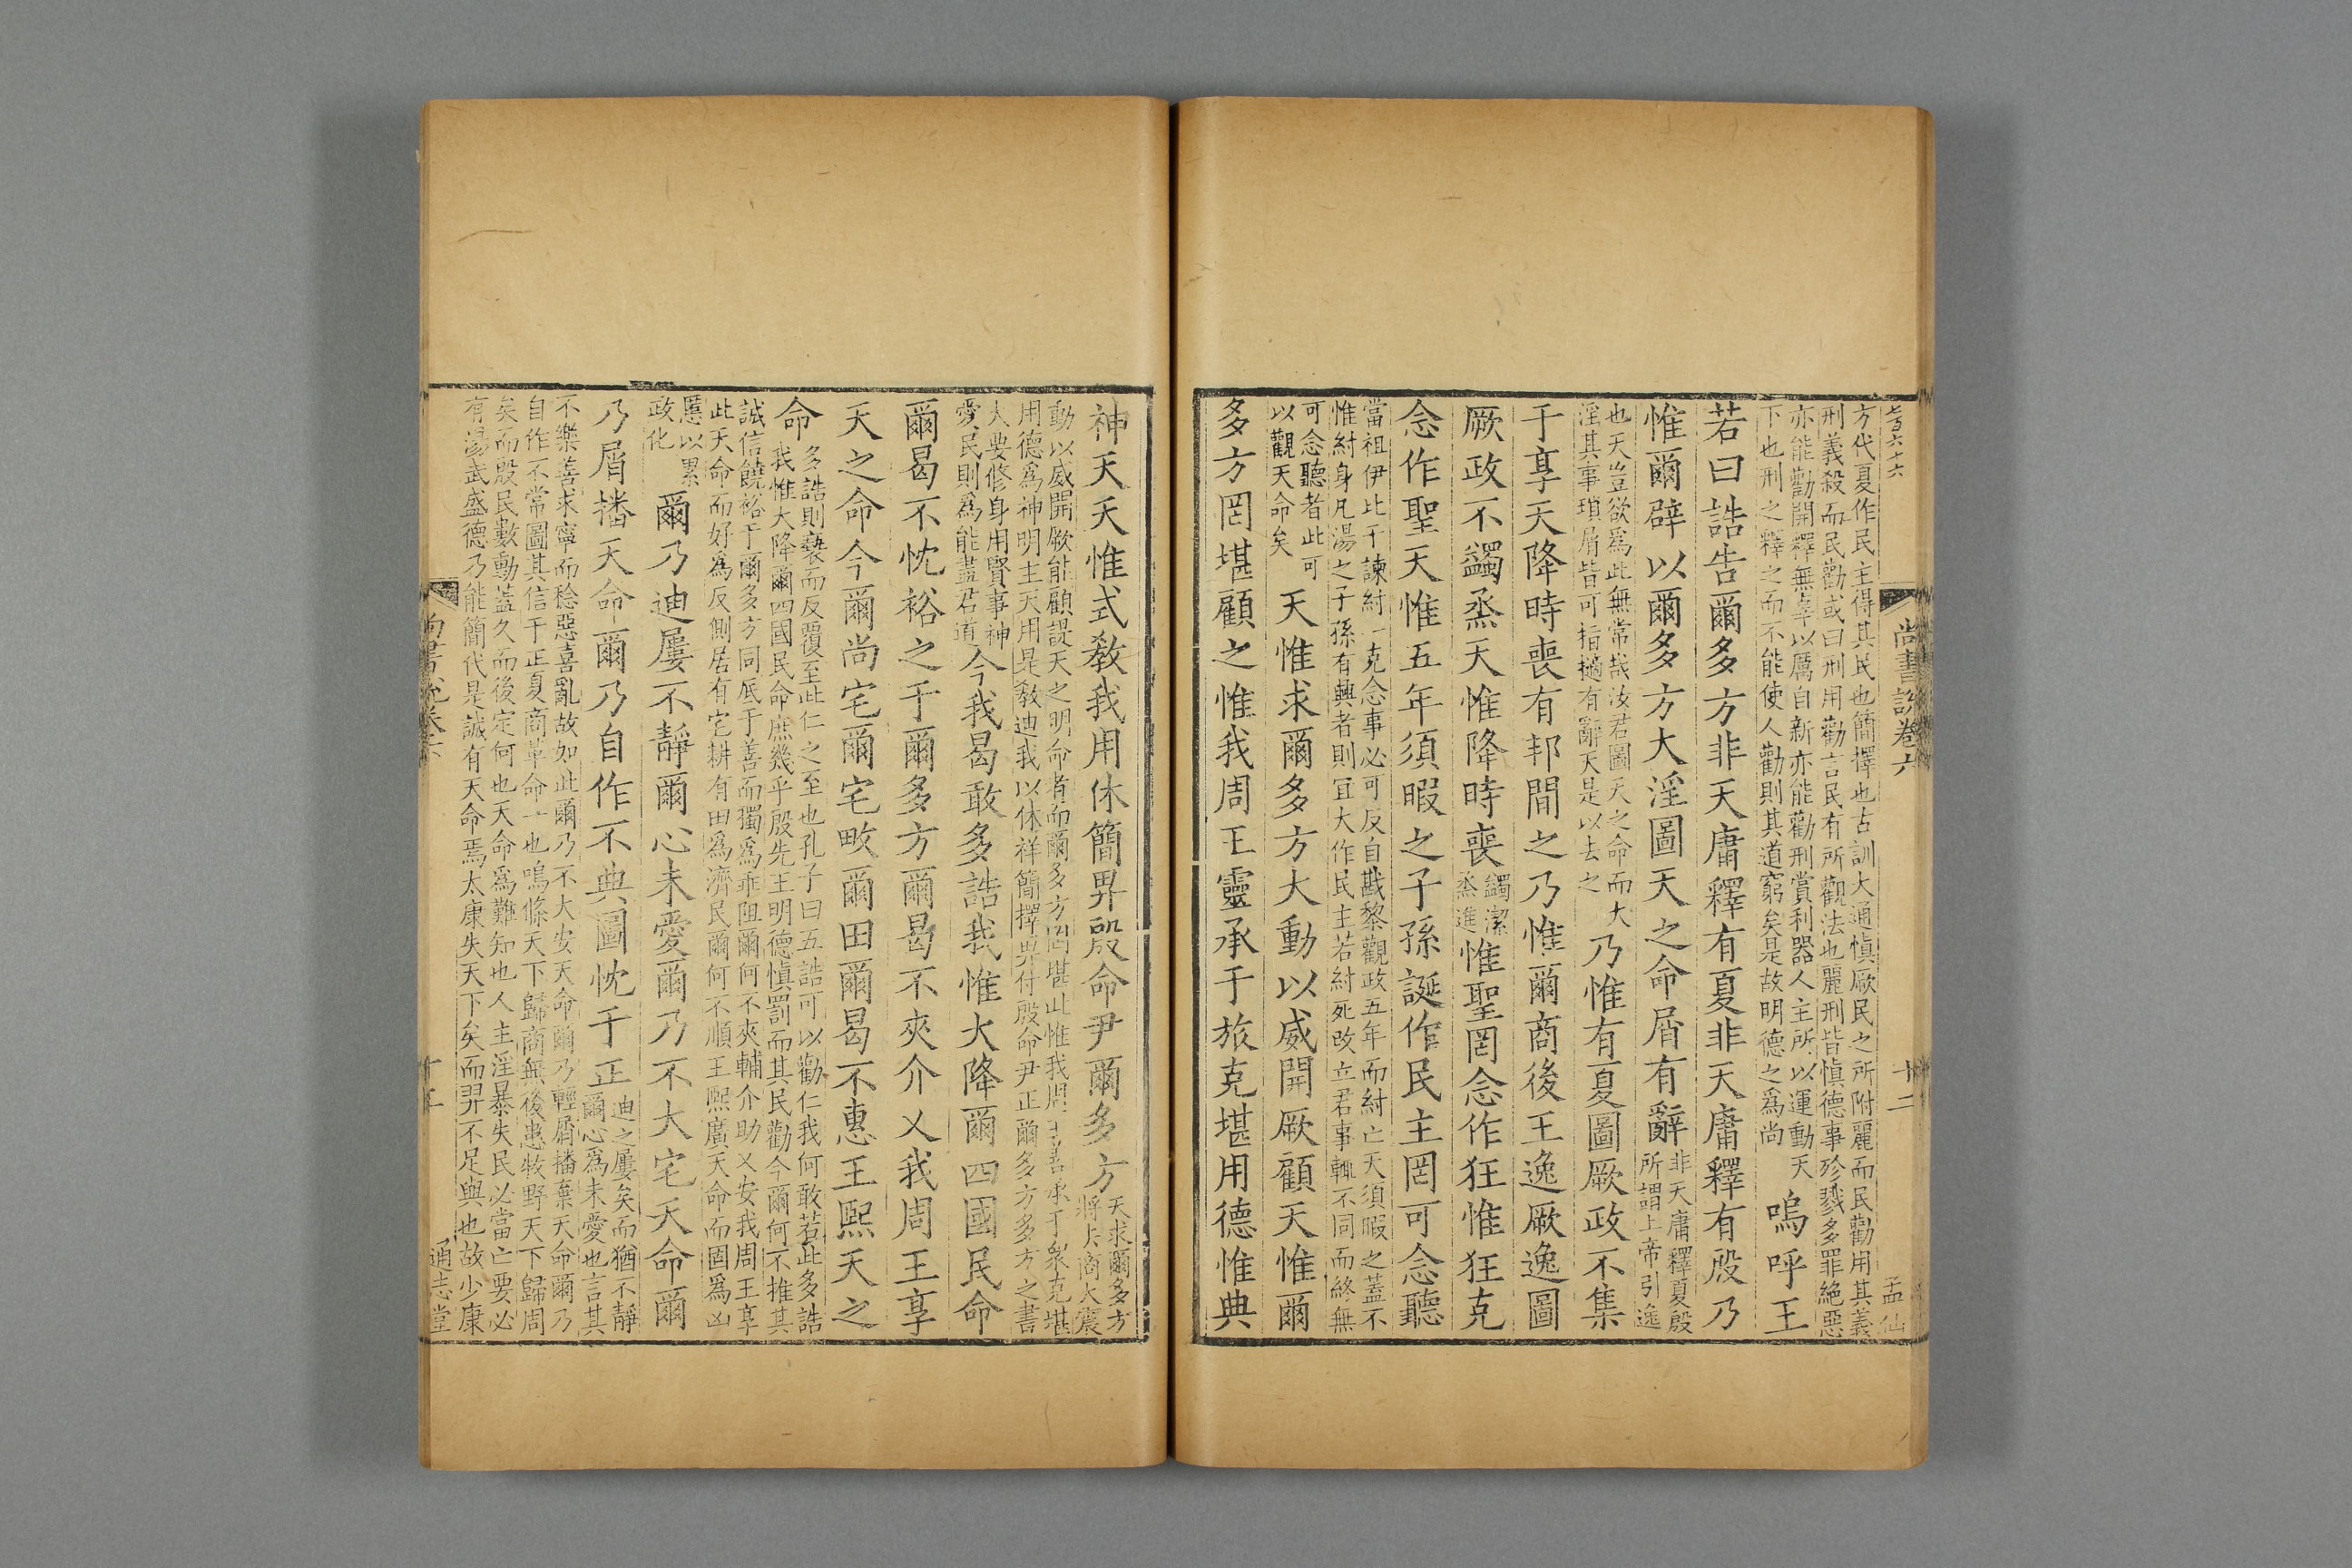 尚書說卷六
十二
孟仙
方代夏作民主得其民也簡擇也古訓大通慎厥民之所附麗而民勸用其義
刑義殺而民勸或曰刑用勸言民有所觀法也麗刑皆慎德事殄戮多罪絕惡
亦能勸開釋無辜以厲自新亦能勸刑賞利器人主所以運動天
下也刑之釋之而不能使人勸則其道窮矣是故明德之為尚
嗚呼王
若曰誥告爾多方非天庸釋有夏非天庸釋有殷乃
惟爾辟以爾多方大淫圖天之命屑有辭
非天庸釋夏殷
所謂上帝引逸
也天豈欲為此無常哉汝君圖天之命而大
淫其事瑣屑皆可指擿有辭天是以去之
乃惟有夏圖厥政不集
于享天降時喪有邦間之乃惟爾商後王逸厥逸圖
厥政不蠲烝天惟降時喪
蠲潔
烝進
惟聖罔念作狂惟狂克
念作聖天惟五年須暇之子孫誕作民主罔可念聽
當祖伊比干諫紂一克念事必可反自戡黎觀政五年而紂亡天須暇之蓋不
惟紂身凡湯之子孫有興者則宜大作民主若紂死改立君事輒不同而終無
可念聽者此可
以觀天命矣
天惟求爾多方大動以威開厥顧天惟爾
多方罔堪顧之惟我周王靈承于旅克堪用德惟典
神天天惟式教我用休簡畀殷命尹爾多方
天求爾多方
將大商大震
動以威開厥能顧諟天之明命者而爾多方罔堪此惟我周王善承于眾克堪
用德為神明主天用是教迪我以休祥簡擇畀付殷命尹正爾多方多方之書
大要修身用賢事神
愛民則為能盡君道
今我曷敢多誥我惟大降爾四國民命
爾曷不忱裕之于爾多方爾曷不夾介乂我周王享
天之命今爾尚宅爾宅畋爾田爾曷不惠王熙天之
命
多誥則褻而反覆至此仁之至也孔子曰五誥可以勸仁我何敢若此多誥
我惟大降爾四國民命庶幾乎殷先王明德慎罰而其民勸今爾何不推其
誠信饒裕于爾多方同厎于善而獨為乖阻爾何不夾輔介助乂安我周王享
此天命而好為反側居有宅耕有田為濟民爾何不順王熙廣天命而固為凶
慝以累
政化
爾乃迪屢不靜爾心未愛爾乃不大宅天命爾
乃屑播天命爾乃自作不典圖忱于正
迪之屢矣而猶不靜
爾心為未愛也言其
不樂善求寧而稔惡喜亂故如此爾乃不大安天命爾乃輕屑播棄天命爾乃
自作不常圖其信于正夏商革命一也鳴條天下歸商無後患牧野天下歸周
矣而殷民數動蓋久而後定何也天命為難知也人主淫暴失民必當亡要必
有湯武盛德乃能簡代是誠有天命焉太康失天下矣而羿不足與也故少康
通志堂